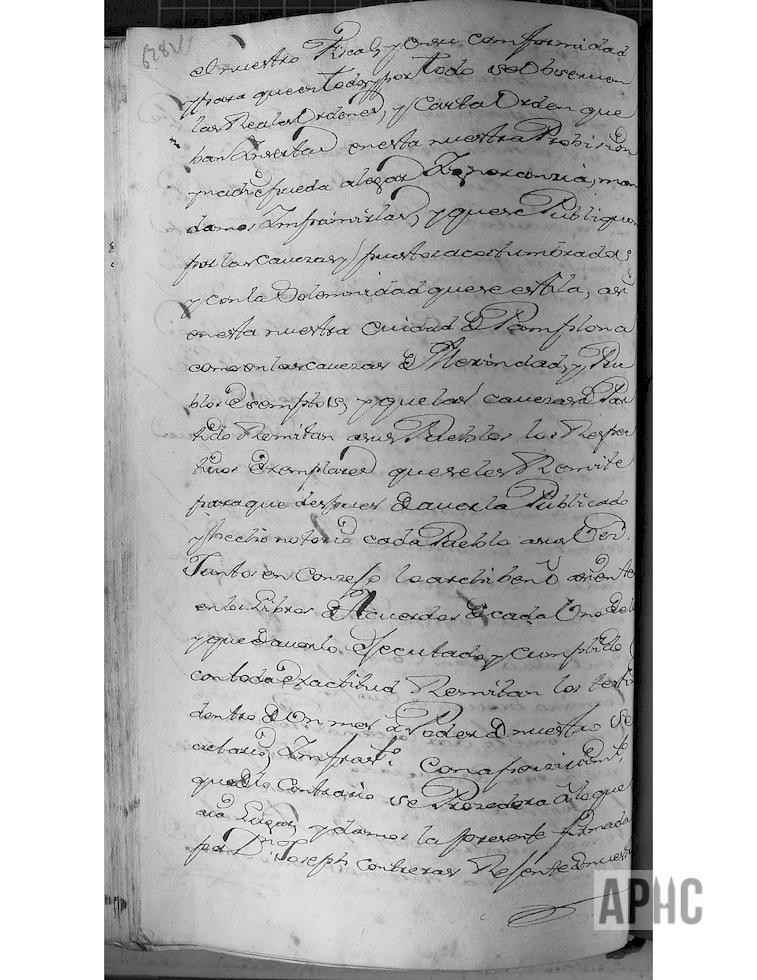 628v
el nuestro Fiscal, y en su comformidad
y para que en todo y por todo se observen
las Reales Ordenes, y Carta Orden que
ban Insertas en esta nuestra Probision
y nadie pueda alegar Ignorancia, man
damos Imprimirlas, y que se Publiquen
por las cavezas y puestos acostumbrados
y con la Solemnidad que se estila, asi
en esta nuestra Ciudad de Pamplona
como en las cavezas de Merindad, y Pue
blos exemptos, y que las cavezas de Par
tido Remitan a sus Pueblos los Respec
tivos Exemplares que se les Remite
para que despues de averla Publicado
y hecho notorio cada Pueblo a sus Vez.
Juntos en Conzejo lo archiben o asienten
en los Libros de Acuerdos de cada Uno de
y que de averlo Executado, y Cumplido
con toda exactitud Remitan los testim
dentro de Un mes a Poder de nuestro Se
cretario Infrasto. con apercivimto.
que de lo Contrario se Prozedera a lo que
aia Lugar, y damos la presente firmada
por Dn. Joseph Contreras Rejente de nuestro
APHC